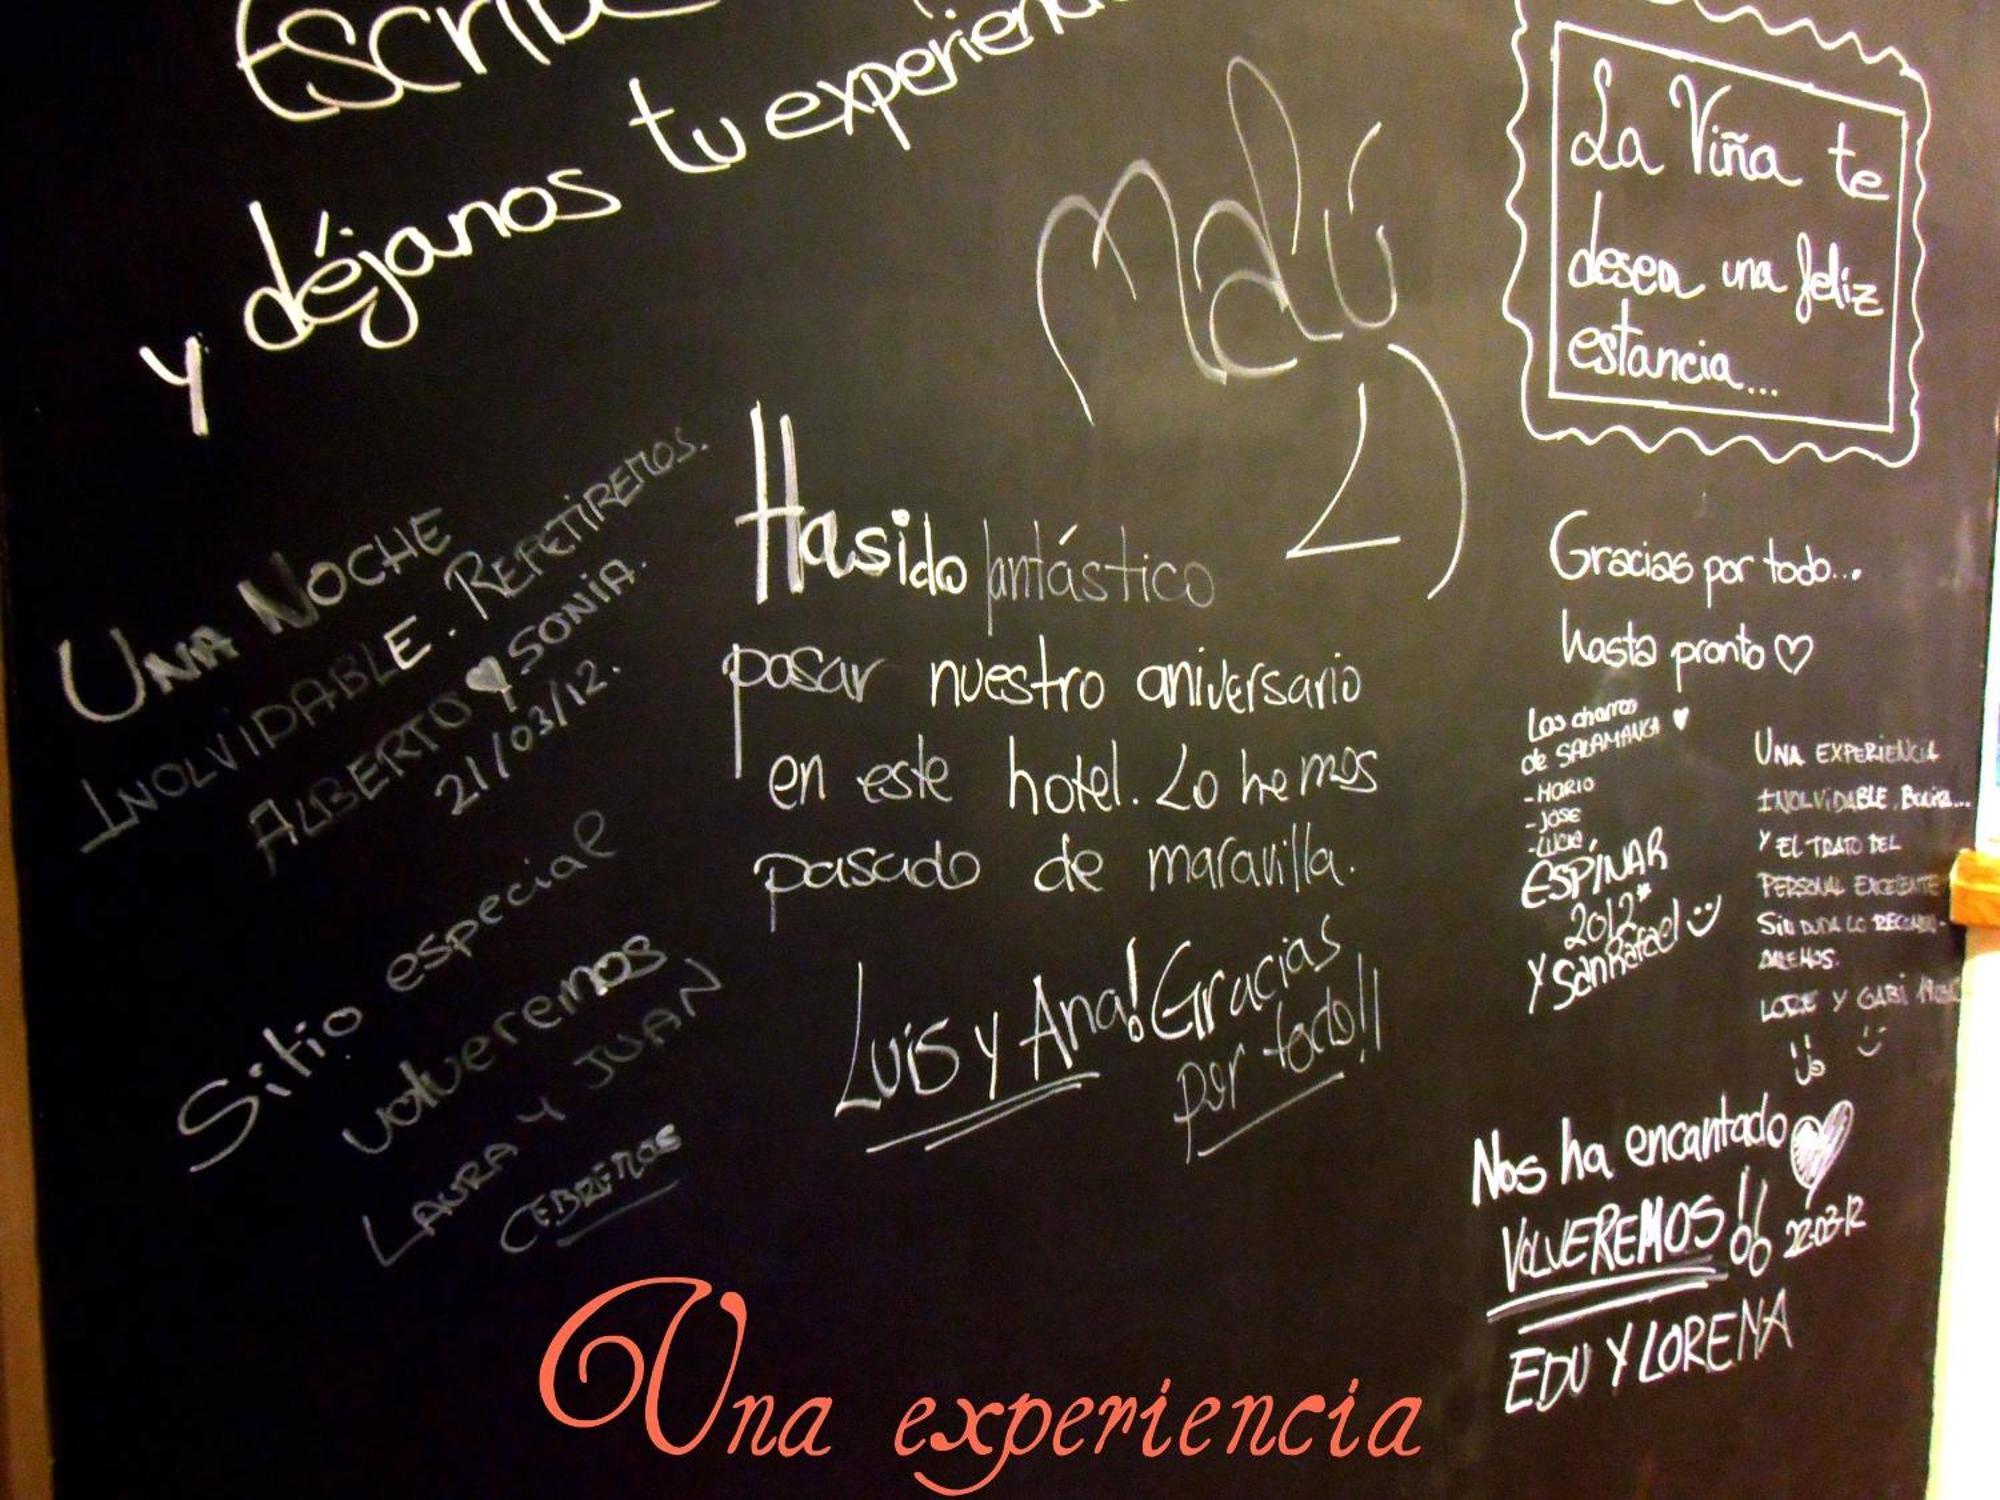 y déjanos tu
Malú
La Viña te
desea una feliz
estancia...
UNA NOCHE
INOLVIDABLE. REPETIREMOS.
ALBERTO Y SONIA.
21/03/12.
Ha sido fantástico
pasar nuestro aniversario
en este hotel. Lo hemos
pasado de maravilla.
Luis y Ana! Gracias
por todo!!
Sitio especial
volveremos
LAURA Y JUAN
CEBREROS
Gracias por todo...
hasta pronto ♡
de SALAMANCA ♥
-MARIO
-JOSE
-LUCIA
ESPINAR
2012*
Y San Rafael :)
UNA EXPERIENCIA
INOLVIDABLE,
Y EL TRATO DEL
PERSONAL EXCELENTE
SIN DUDA LO RECOMEN-
DAREMOS.
LORE Y GABI
Nos ha encantado
VOLVEREMOS!! 22-03-12
EDU Y LORENA
Una experiencia